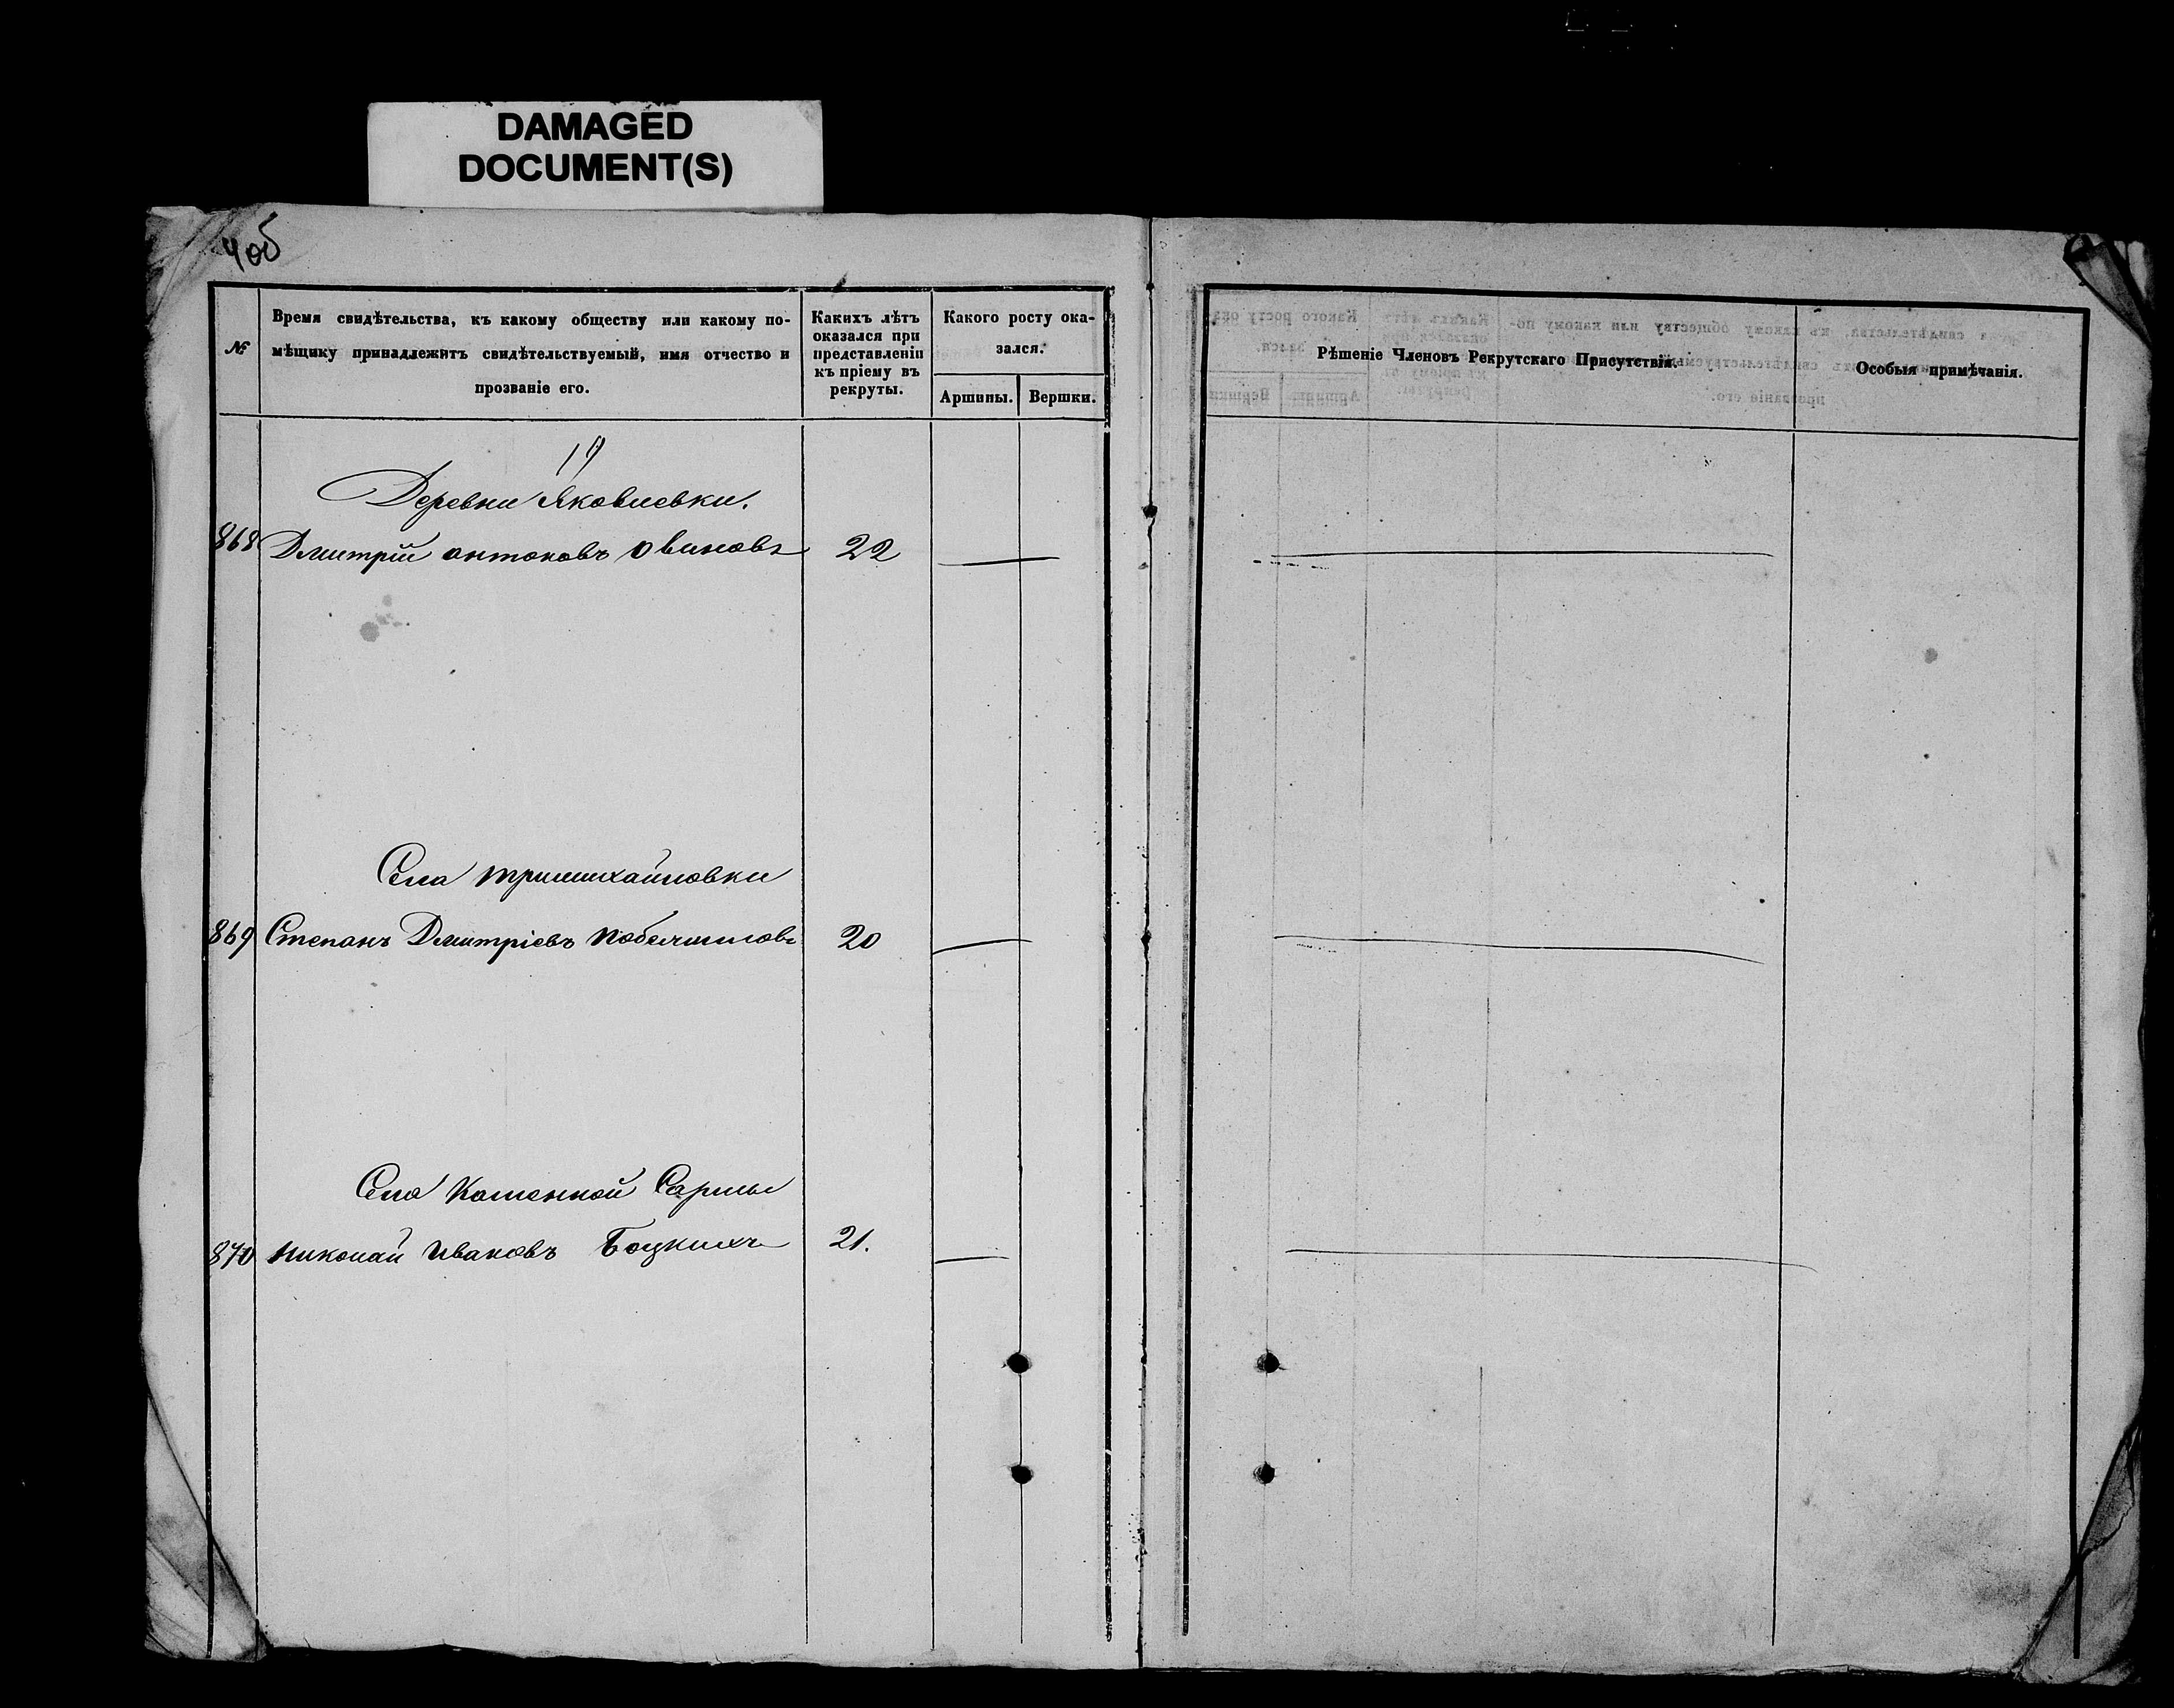 DAMAGED
DOCUMENT(S)
4об
№
Время свидѣтельства, къ какому обществу или какому по-
мѣщику принадлежитъ свидѣтельствуемый, имя отчество и
прозваніе его.
Какихъ лѣтъ
оказался при
представленіи
къ пріему въ
рекруты.
Какого росту ока-
зался.
Аршины.
Вершки.
Рѣшеніе Членовъ Рекрутскаго Присутствія.
Особыя примѣчанія.
19
Деревни Яковлевки.
868 Дмитрій Антоновъ Овиновъ 22
Села Тримихайловки
869 Степанъ Дмитріевъ 20
Села Каменной Сармы
870 Николай Ивановъ Боцкихъ 21.